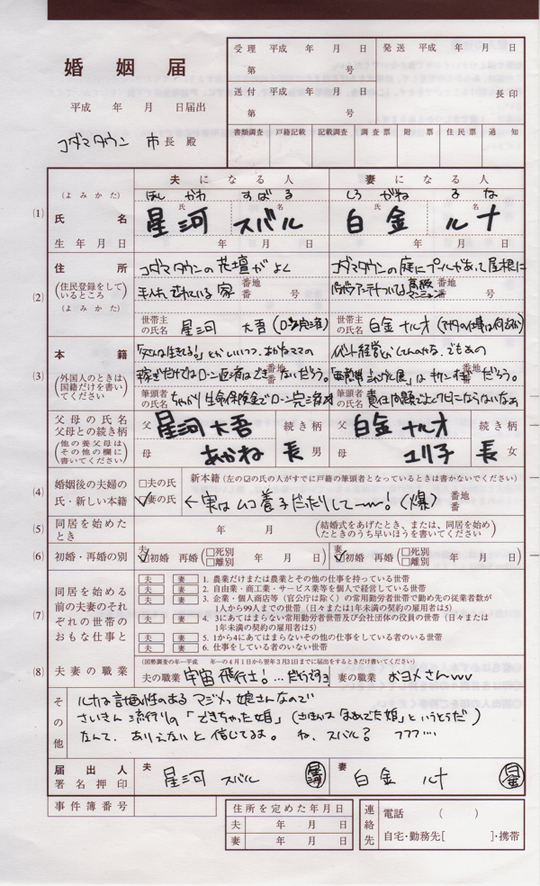 婚姻届
平成 年 月 日届出
コダマタウン 市長殿
受理 平成 年 月 日
第 号
発送 平成 年 月 日
送付 平成 年 月 日
第 号
長印
書類調査 戸籍記載 記載調査 調査票 附票 住民票 通知
夫になる人 妻になる人
(1)
(よみかた) ほし かわ すばる しろ がね るな
氏名 氏 名 氏 名
星河 スバル 白金 ルナ
生年月日 年 月 日 年 月 日
(2)
住所
(住民登録をしているところ)
(よみかた)
コダマタウンの花壇がよく
手入れされている家 番地 番 号
コダマタウンの庭にプールがあって屋根に
番地 番 号
世帯主の氏名 星河 大吾
世帯主の氏名 白金 ナルオ
(3)
本籍
(外国人のときは国籍だけを書いてください)
番地 番
番地 番
筆頭者の氏名
筆頭者の氏名
父母の氏名
父母との続き柄
(他の養父母はその他の欄に書いてください)
父 星河 大吾 続き柄
母 あかね 長男
父 白金 ナルオ 続き柄
母 ユリ子 長女
(4)
婚姻後の夫婦の氏・新しい本籍
□夫の氏
☑妻の氏
新本籍(左の☑の氏の人がすでに戸籍の筆頭者となっているときは書かないでください)
←実はムコ養子だたりしてーw!(爆) 番地 番
(5)
同居を始めたとき
年 月
(結婚式をあげたとき、または、同居を始めたときのうち早いほうを書いてください)
(6)
初婚・再婚の別
夫 ☑初婚 再婚(□死別 □離別 年 月 日)
妻 ☑初婚 再婚(□死別 □離別 年 月 日)
(7)
同居を始める前の夫妻のそれぞれの世帯のおもな仕事と
夫 妻 1. 農業だけまたは農業とその他の仕事を持っている世帯
夫 妻 2. 自由業・商工業・サービス業等を個人で経営している世帯
夫 妻 3. 企業・個人商店等(官公庁は除く)の常用勤労者世帯で勤め先の従業者数が
1人から99人までの世帯(日々または1年未満の契約の雇用者は5)
夫 妻 4. 3にあてはまらない常用勤労者世帯及び会社団体の役員の世帯(日々または
1年未満の契約の雇用者は5)
夫 妻 5. 1から4にあてはまらないその他の仕事をしている者のいる世帯
夫 妻 6. 仕事をしている者のいない世帯
(8)
夫妻の職業
(国勢調査の年―平成 年―の4月1日から翌年3月31日までに届出をするときだけ書いてください)
夫の職業 宇宙飛行士!
妻の職業 およめさんvvv
その他
ルナは計画性のあるマジメっ娘さんなので
さいきん流行りの「できちゃった婚」
なんて、ありえないと信じてるよ。ね、スバル? フフフ…
届出人
署名押印
夫 星河 スバル
妻 白金 ルナ
事件簿番号
住所を定めた年月日
夫 年 月 日
妻 年 月 日
連絡先
電話 ( )
自宅・勤務先[ ]・携帯